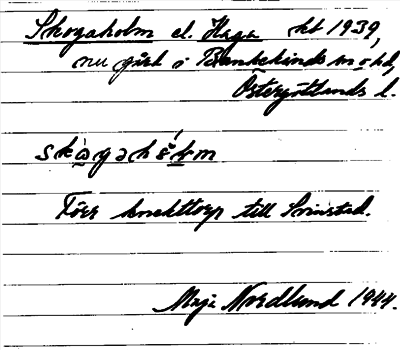 Skogaholm el. Haga kt 1939,
nu gård i Bankekinds sn o hd,
Östergötlands l.
skògahål̀m
Förr knekttorp till Svinstad.
Maja Nordlund 1944.